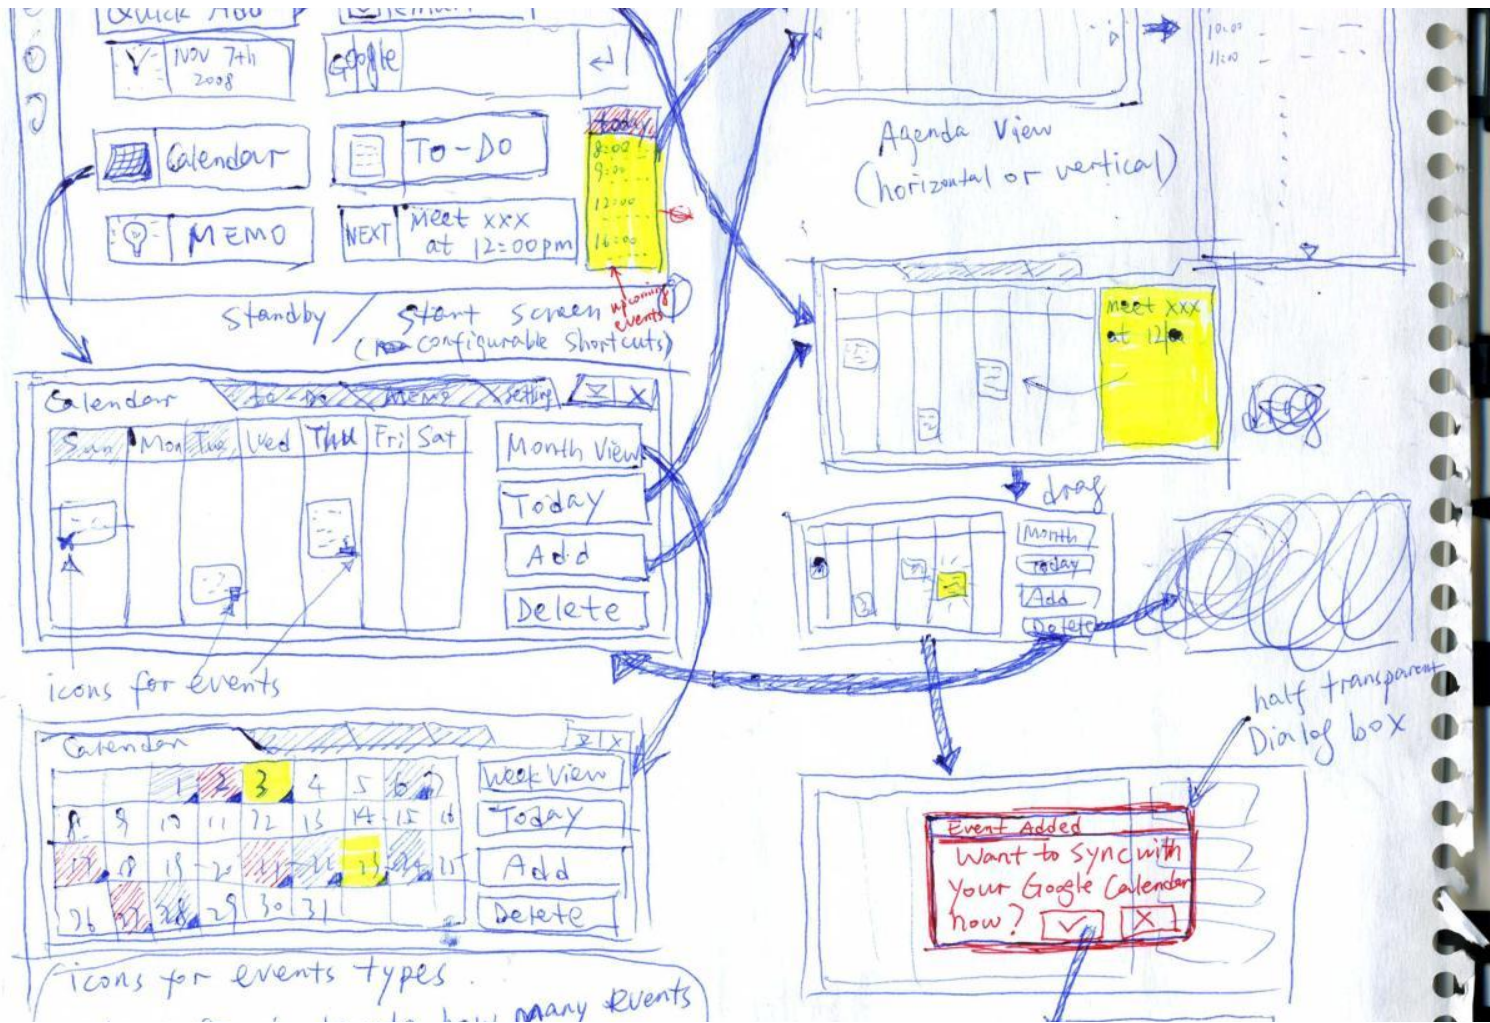 Quick Add
Email
Nov 7th
2008
Google
Calendar
To-DO
MEMO
NEXT
Meet xxx
at 12:00pm
today
8:00
9:00
12:00
16:00
upcoming
events
Standby / Start Screen
(configurable shortcuts)
10:00
11:00
Agenda View
(horizontal or vertical)
meet xxx
at 12
drag
Calendar
to-do
MEMO
setting
X
Sun Mon Tue Wed Thu Fri Sat
Month View
Today
Add
Delete
icons for events
Month
Today
Add
Delete
half transparent
Dialog box
Calendar
X
1 2 3 4 5 6 7
8 9 10 11 12 13 14 15 16
17 18 19 20 21 22 23 24 25
26 27 28 29 30 31
Week View
Today
Add
Delete
Event Added
Want to sync with
your Google Calendar
now?
X
icons for events types
how many events